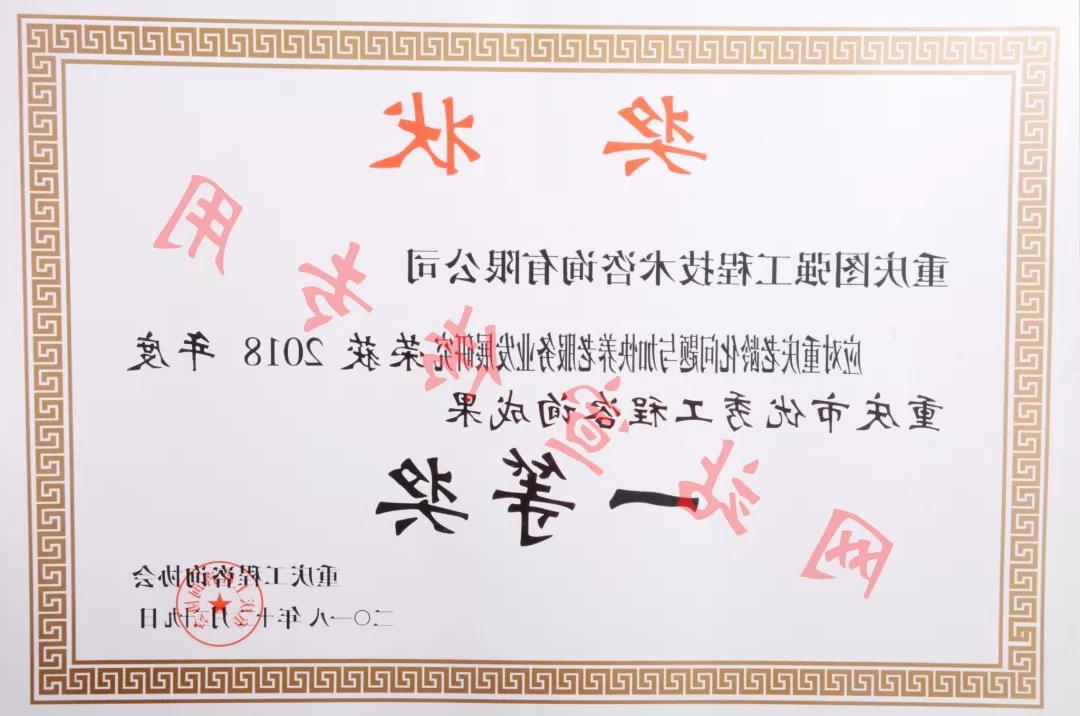 奖状
重庆图强工程技术咨询有限公司
应对重庆老龄化问题与加快养老服务业发展研究荣获 2018 年度
重庆市优秀工程咨询成果
一等奖
重庆工程咨询协会
二〇一八年十二月 九日
网站宣传专用